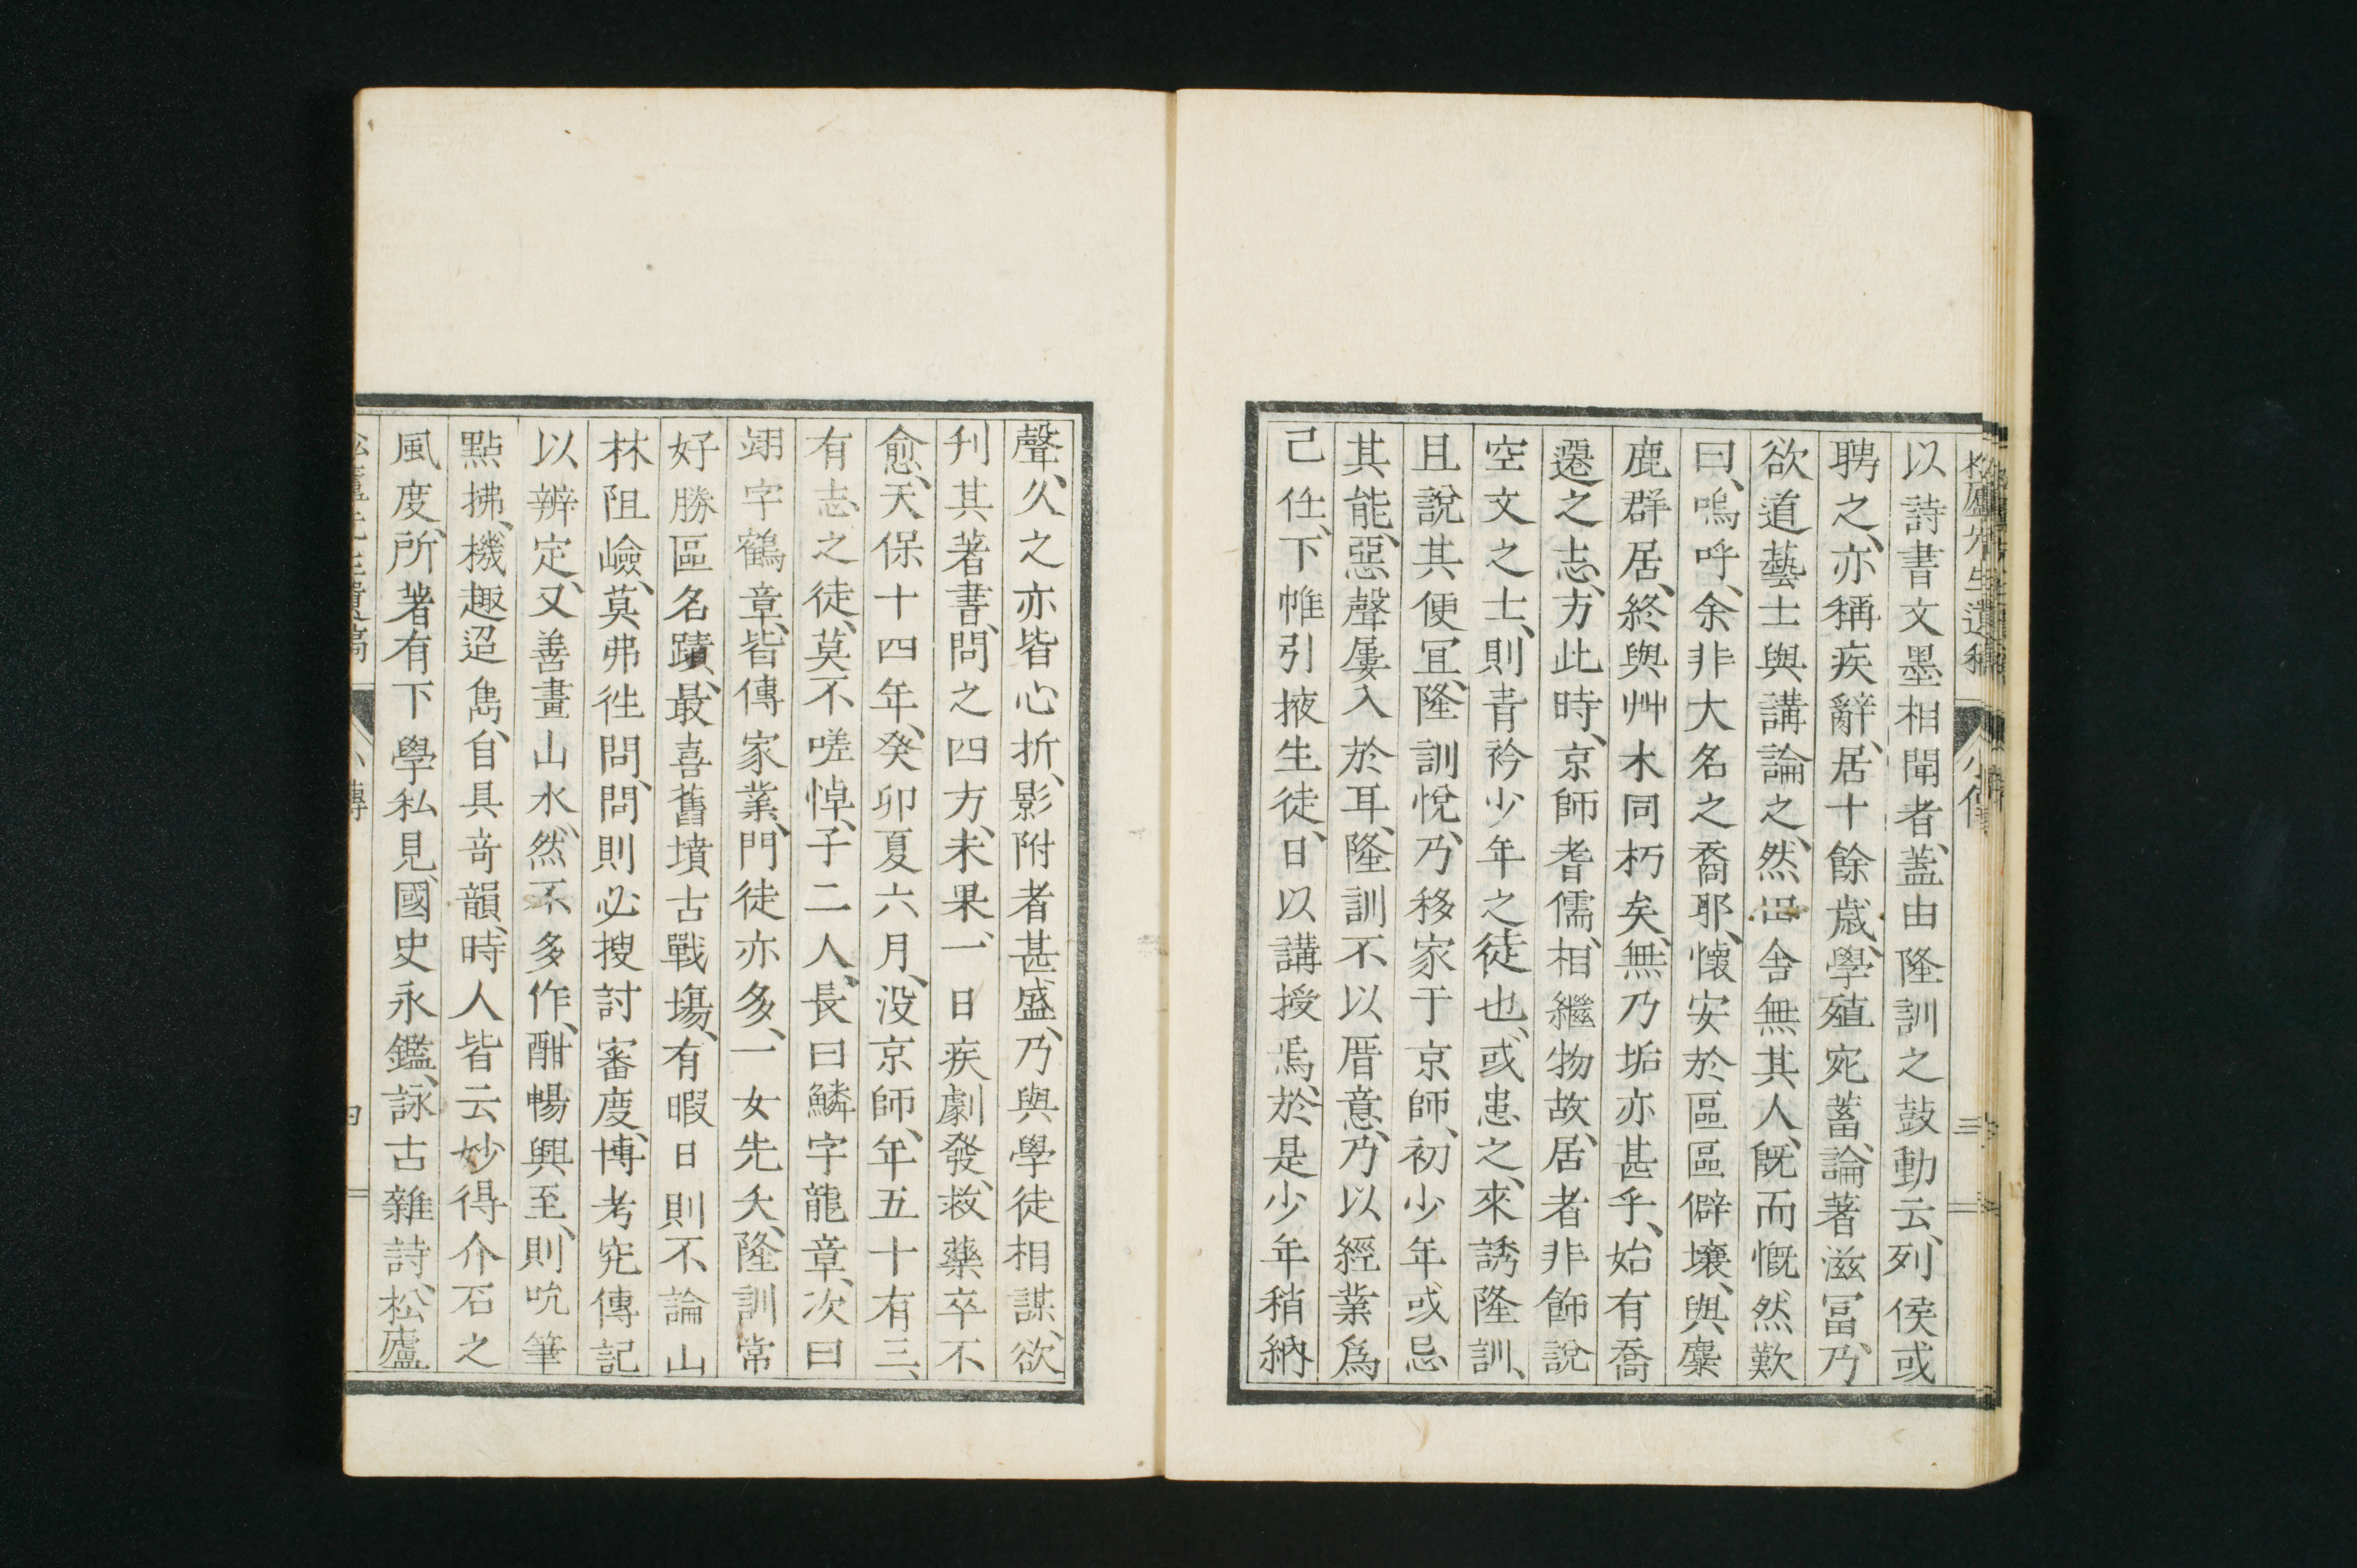 松廬先生遺稿 小傳 三
以詩書文墨相聞者、蓋由隆訓之鼓動云、列侯或
聘之、亦稱疾辭、居十餘歳、學殖宛蓄、論著滋冨、乃
欲道藝士與講論之、然田舍無其人、既而慨然歎
曰、嗚呼、余非大名之裔耶、懷安於區區僻壤、與麋
鹿群居、終與艸木同朽矣、無乃垢亦甚乎、始有喬
遷之志、方此時、京師耆儒、相繼物故、居者非飾說
空文之士、則青衿少年之徒也、或患之、來誘隆訓、
且說其便冝、隆訓悅、乃移家于京師、初少年或忌
其能、惡聲屢入於耳、隆訓不以厝意、乃以經業爲
己任、下帷引掖生徒、日以講授焉、於是少年稍納
聲、久之亦皆心折、影附者甚盛、乃與學徒相謀、欲
刋其著書、問之四方、未果、一日疾劇發、救藥卒不
愈、天保十四年、癸卯夏六月、没京師、年五十有三、
有志之徒、莫不嗟悼、子二人、長曰鱗字龍章、次曰
翊字鶴章、皆傳家業、門徒亦多、一女先夭、隆訓常
好勝區名蹟、最喜舊墳古戰塲、有暇日則不論山
林阻嶮、莫弗徃問、問則必搜討審度、博考究傳記
以辨定、又善畫山水、然不多作、酣暢興至、則吮筆
點拂、機趣迢雋、自具竒韻、時人皆云妙得介石之
風度、所著有下學私見、國史永鑑、詠古雜詩、松廬